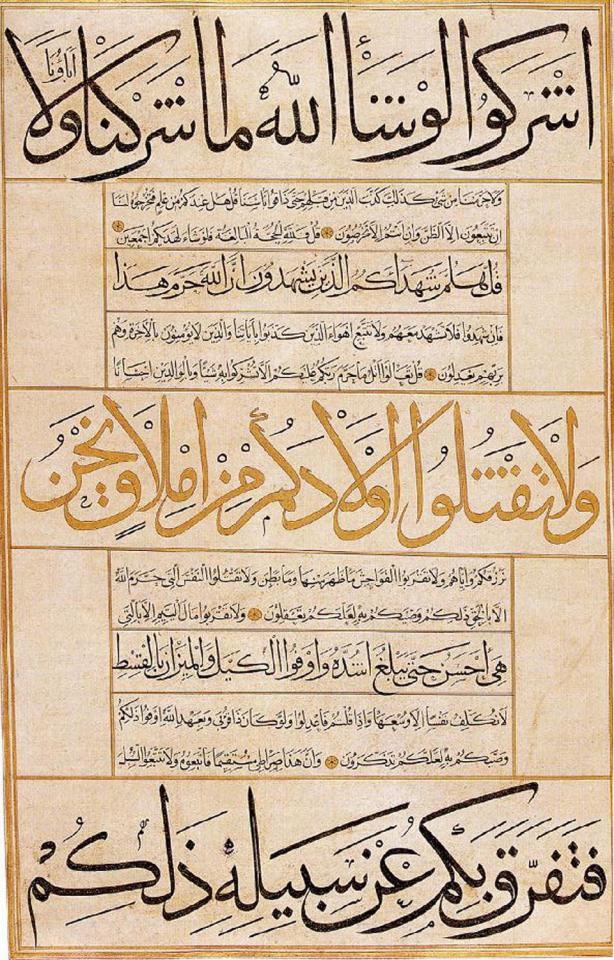 اشركوا لو شأ الله ما اشركنا ولا اباؤنا
ولا حرمنا من شئ كذلك كذب الذين من قبلهم حتى ذاقوا بأسنا قل هل عندكم من علم فتخرجوه لنا
ان تتبعون الا الظن وان انتم الا تخرصون قل فلله الحجة البالغة فلو شاء لهدىكم اجمعين
قل هلم شهدآءكم الذين يشهدون ان الله حرم هذا
فان شهدوا فلا تشهد معهم ولا تتبع اهواء الذين كذبوا باياتنا والذين لا يؤمنون بالاخرة وهم
بربهم يعدلون قل تعالوا اتل ما حرم ربكم عليكم الا تشركوا به شيئا وبالوالدين احسانا
ولا تقتلوا اولادكم من املاق نحن
نرزقكم واياهم ولا تقربوا الفواحش ما ظهر منها وما بطن ولا تقتلوا النفس التى حرم الله
الا بالحق ذلكم وصيكم به لعلكم تعقلون ولا تقربوا مال اليتيم الا بالتى
هى احسن حتى يبلغ اشده واوفوا الكيل والميزان بالقسط
لا نكلف نفسا الا وسعها واذا قلتم فاعدلوا ولو كان ذا قربى وبعهد الله اوفوا ذلكم
وصيكم به لعلكم تذكرون وان هذا صراطى مستقيما فاتبعوه ولا تتبعوا السبل
فتفرق بكم عن سبيله ذلكم